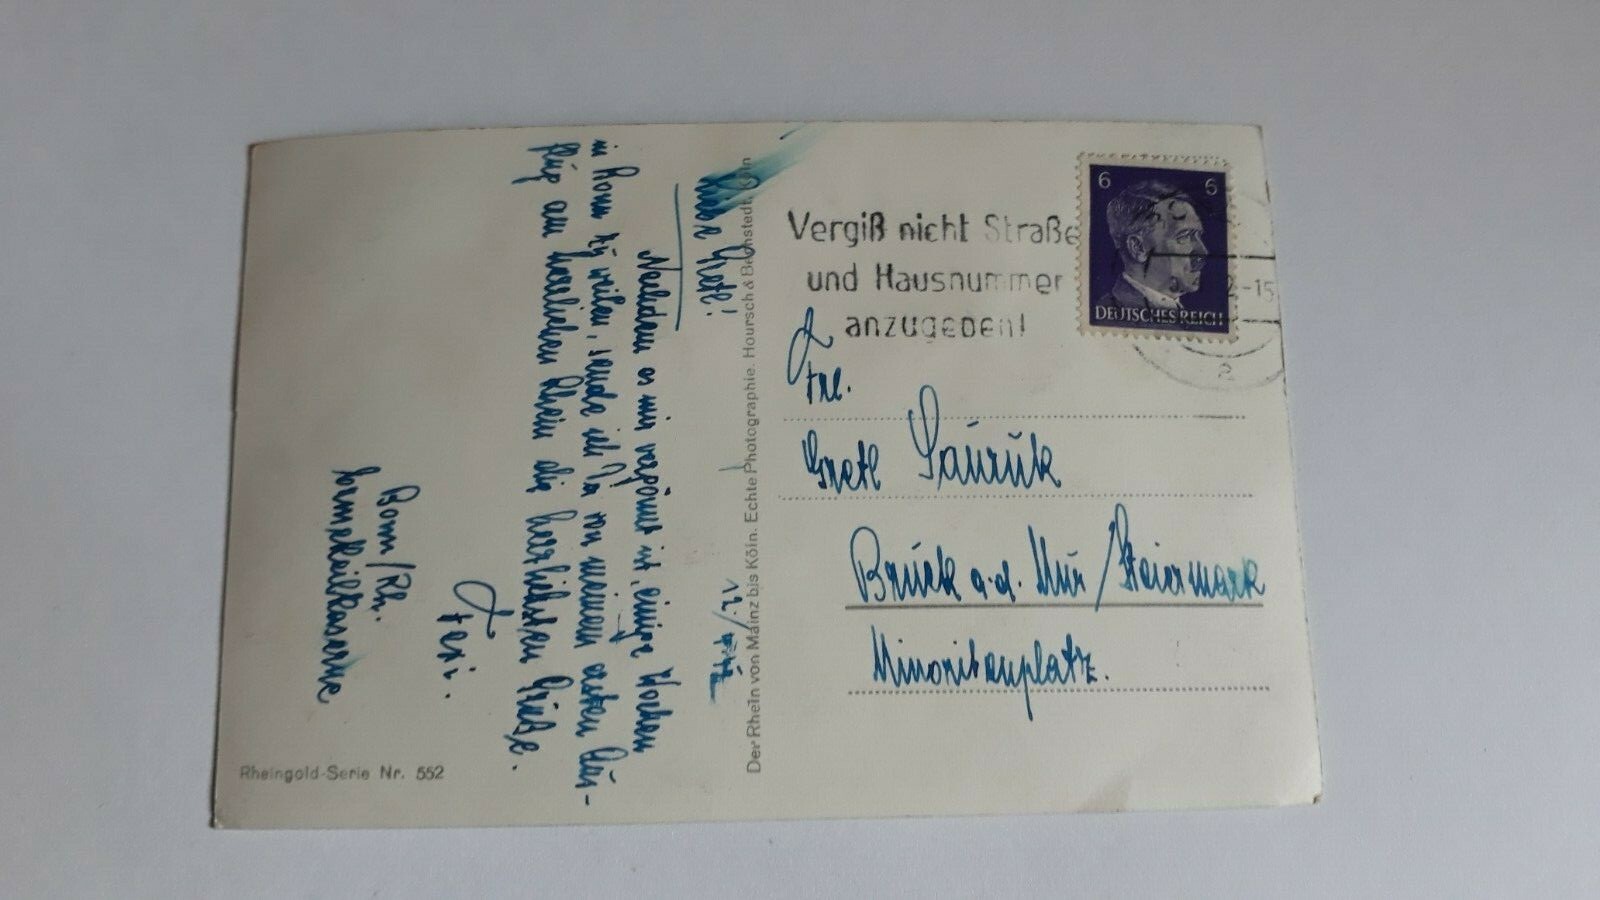 Liebe Gretl!
Nachdem es mir vergönnt ist, einige Wochen
in Bonn zu weilen, sende ich Dir von meinem ersten Aus-
flug am herrlichen Rhein die herzlichsten Grüße.
Feri.
Bonn/Rh.
Ermekeilkaserne
Der Rhein von Mainz bis Köln. Echte Photographie. Hoursch & Bechstedt, Köln
Rheingold-Serie Nr. 552
Vergiß nicht Straße
und Hausnummer
anzugeben!
6 6
DEUTSCHES REICH
-15
Frl.
Gretl
Bruck a.d. Mur/Steiermark
Minoritenplatz.